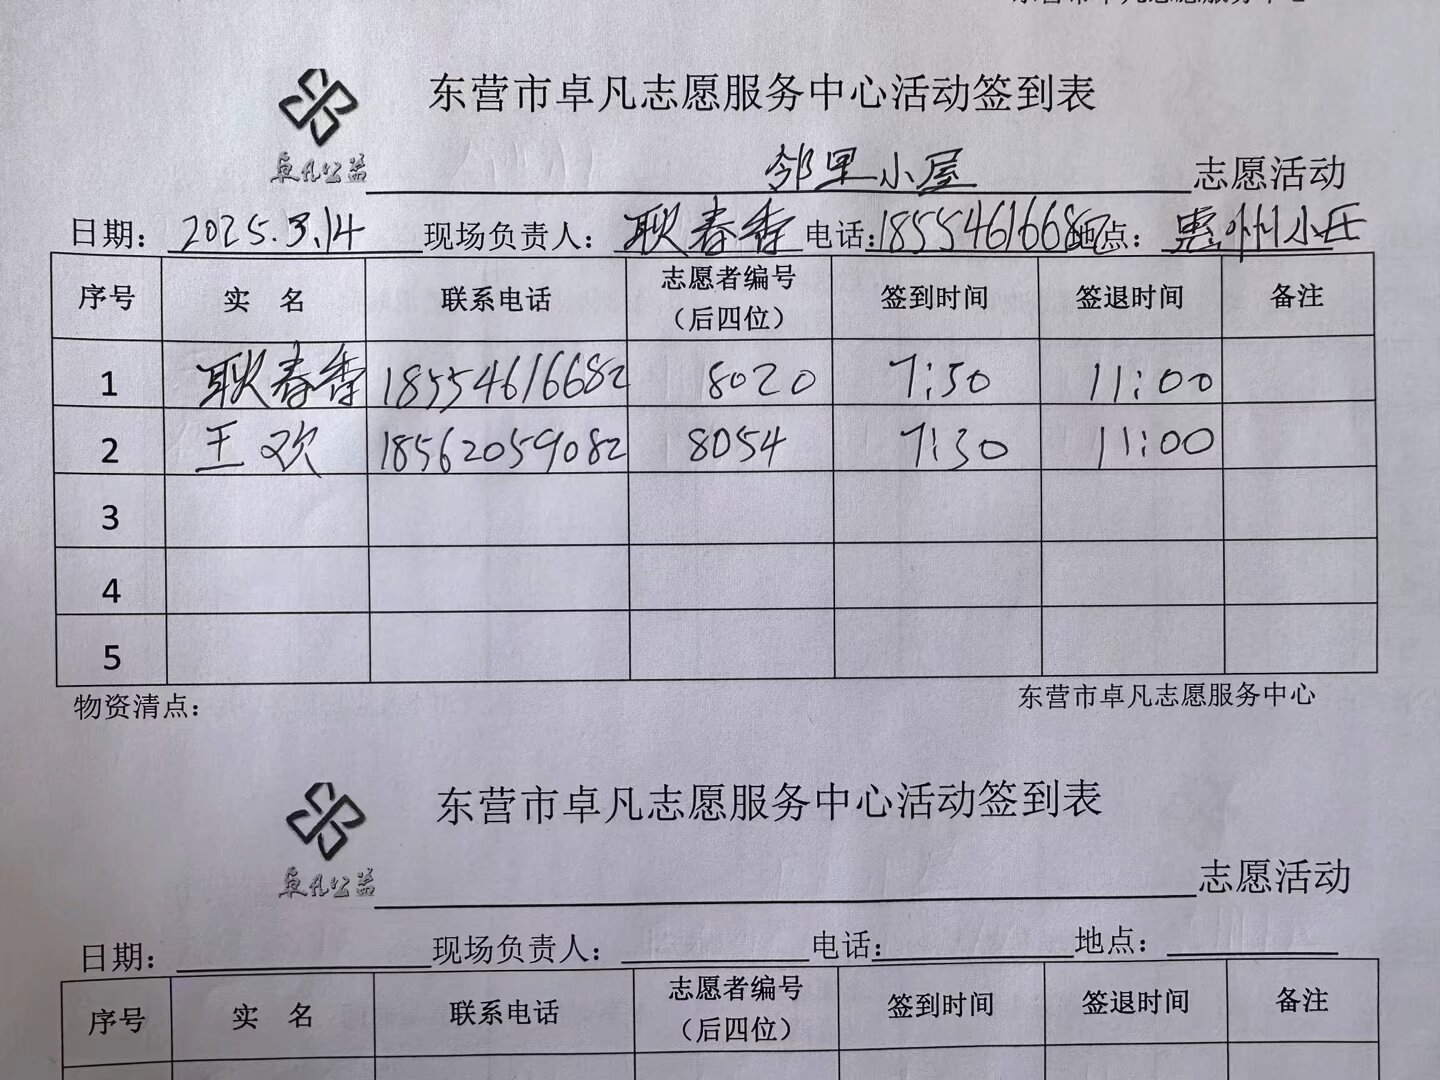 东营市卓凡志愿服务中心
东营市卓凡志愿服务中心活动签到表
卓凡公益
邻里小屋 志愿活动
日期: 2025.3.14 现场负责人: 耿春香 电话: 18554616682 地点: 惠州小庄
序号 实 名 联系电话 志愿者编号(后四位) 签到时间 签退时间 备注
1 耿春香 18554616682 8020 7:30 11:00
2 王欢 18562059082 8054 7:30 11:00
3
4
5
物资清点: 东营市卓凡志愿服务中心
东营市卓凡志愿服务中心活动签到表
卓凡公益
志愿活动
日期: 现场负责人: 电话: 地点:
序号 实 名 联系电话 志愿者编号(后四位) 签到时间 签退时间 备注